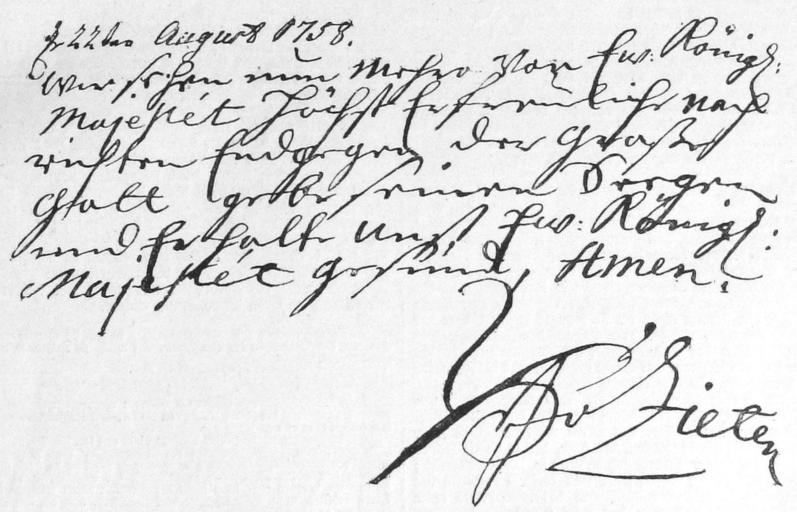 d 22ten August 1758.
wir sehen nun Mehro Von Ew: Königl:
Majestét Höchst Erfreuliche nach
richten Endgegen der Große
Gott gebe seinen Seegen
und Erhalte Unß Ew: Königl:
Majestét gesund, Amen.
Zieten